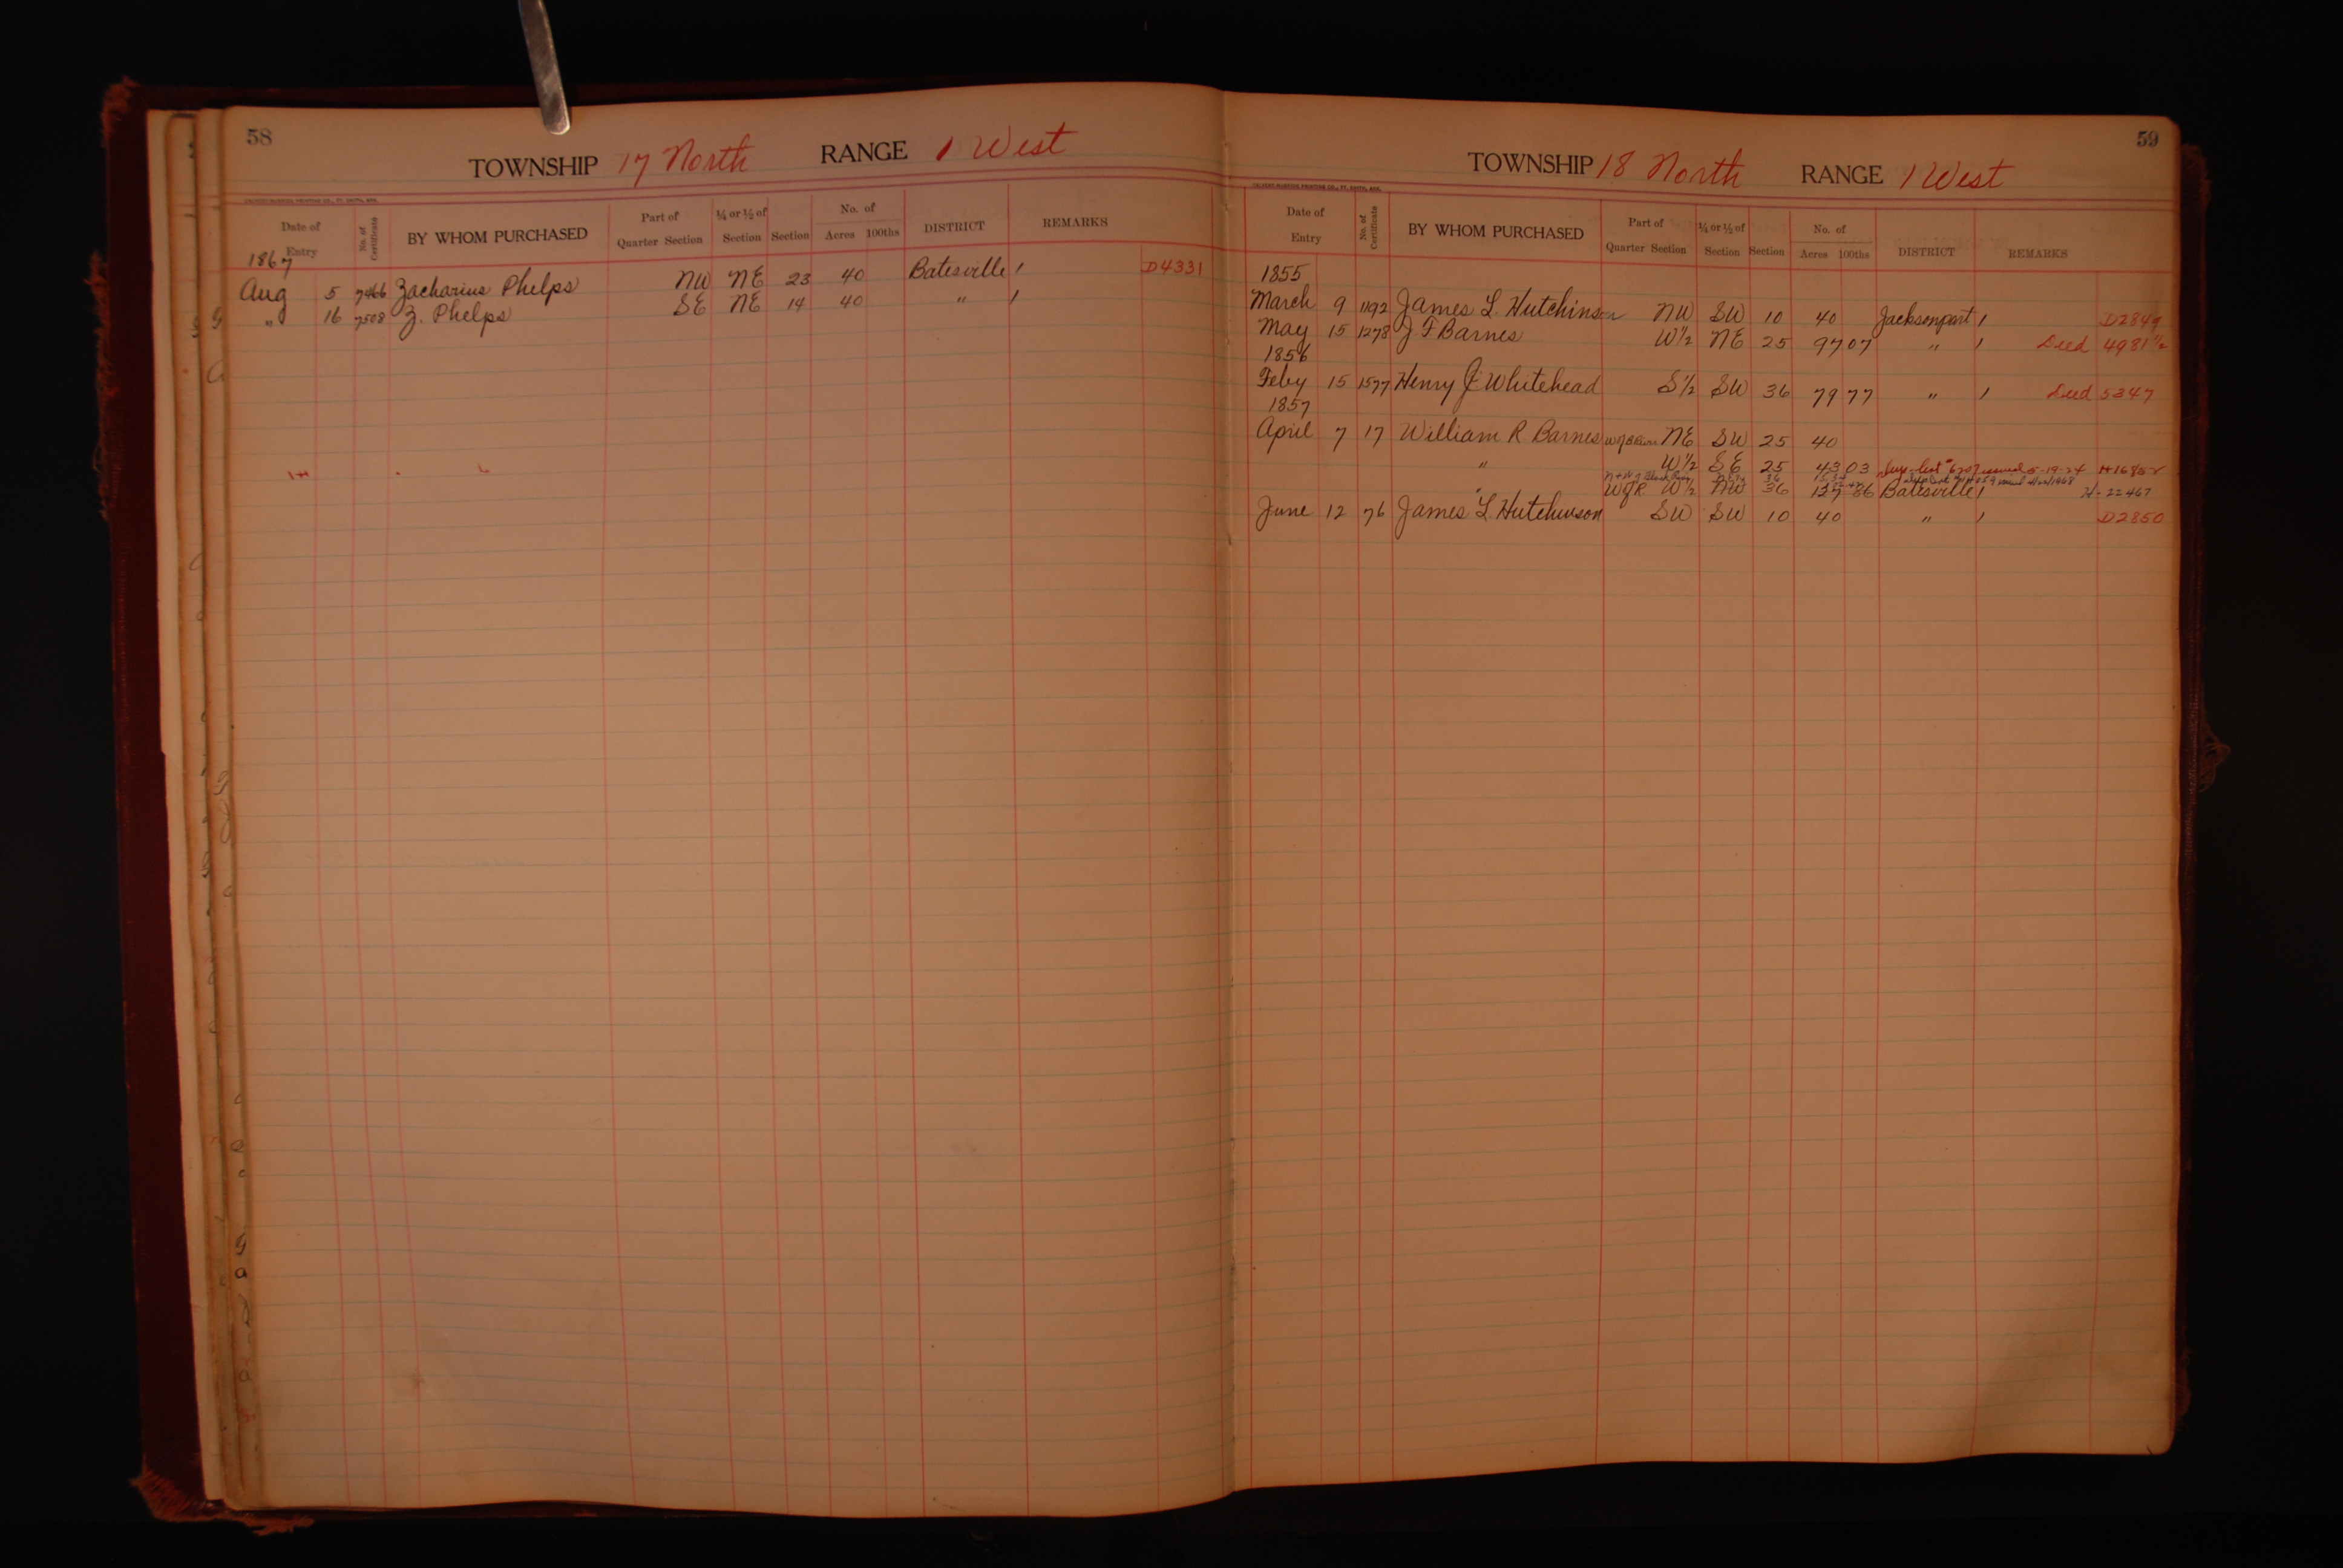 58
TOWNSHIP 17 North RANGE 1 West
CALVERT-McBRIDE PRINTING CO., FT. SMITH, ARK.
Date of Entry No. of Certificate BY WHOM PURCHASED Part of Quarter Section ¼ or ½ of Section Section No. of Acres 100ths DISTRICT REMARKS
1867
Aug 5 7466 Zacharius Phelps NW NE 23 40 Batesville / D4331
" 16 7508 Z. Phelps SE NE 14 40 " /
59
TOWNSHIP 18 North RANGE 1 West
CALVERT-McBRIDE PRINTING CO., FT. SMITH, ARK.
Date of Entry No. of Certificate BY WHOM PURCHASED Part of Quarter Section ¼ or ½ of Section Section No. of Acres 100ths DISTRICT REMARKS
1855
March 9 1192 James L. Hutchinson NW SW 10 40 Jacksonport / D2849
May 15 1278 J F Barnes W½ NE 25 97 07 " / Deed 4981½
1856
Feby 15 1577 Henry J. Whitehead S½ SW 36 79 77 " / Deed 5347
1857
April 7 17 William R Barnes NE SW 25 40
" W½ SE 25 43 03 issued 5-19-24 H16852
" W of R W½ NW 36 127 86 Batesville / H-22467
June 12 76 James L. Hutchinson SW SW 10 40 " / D2850